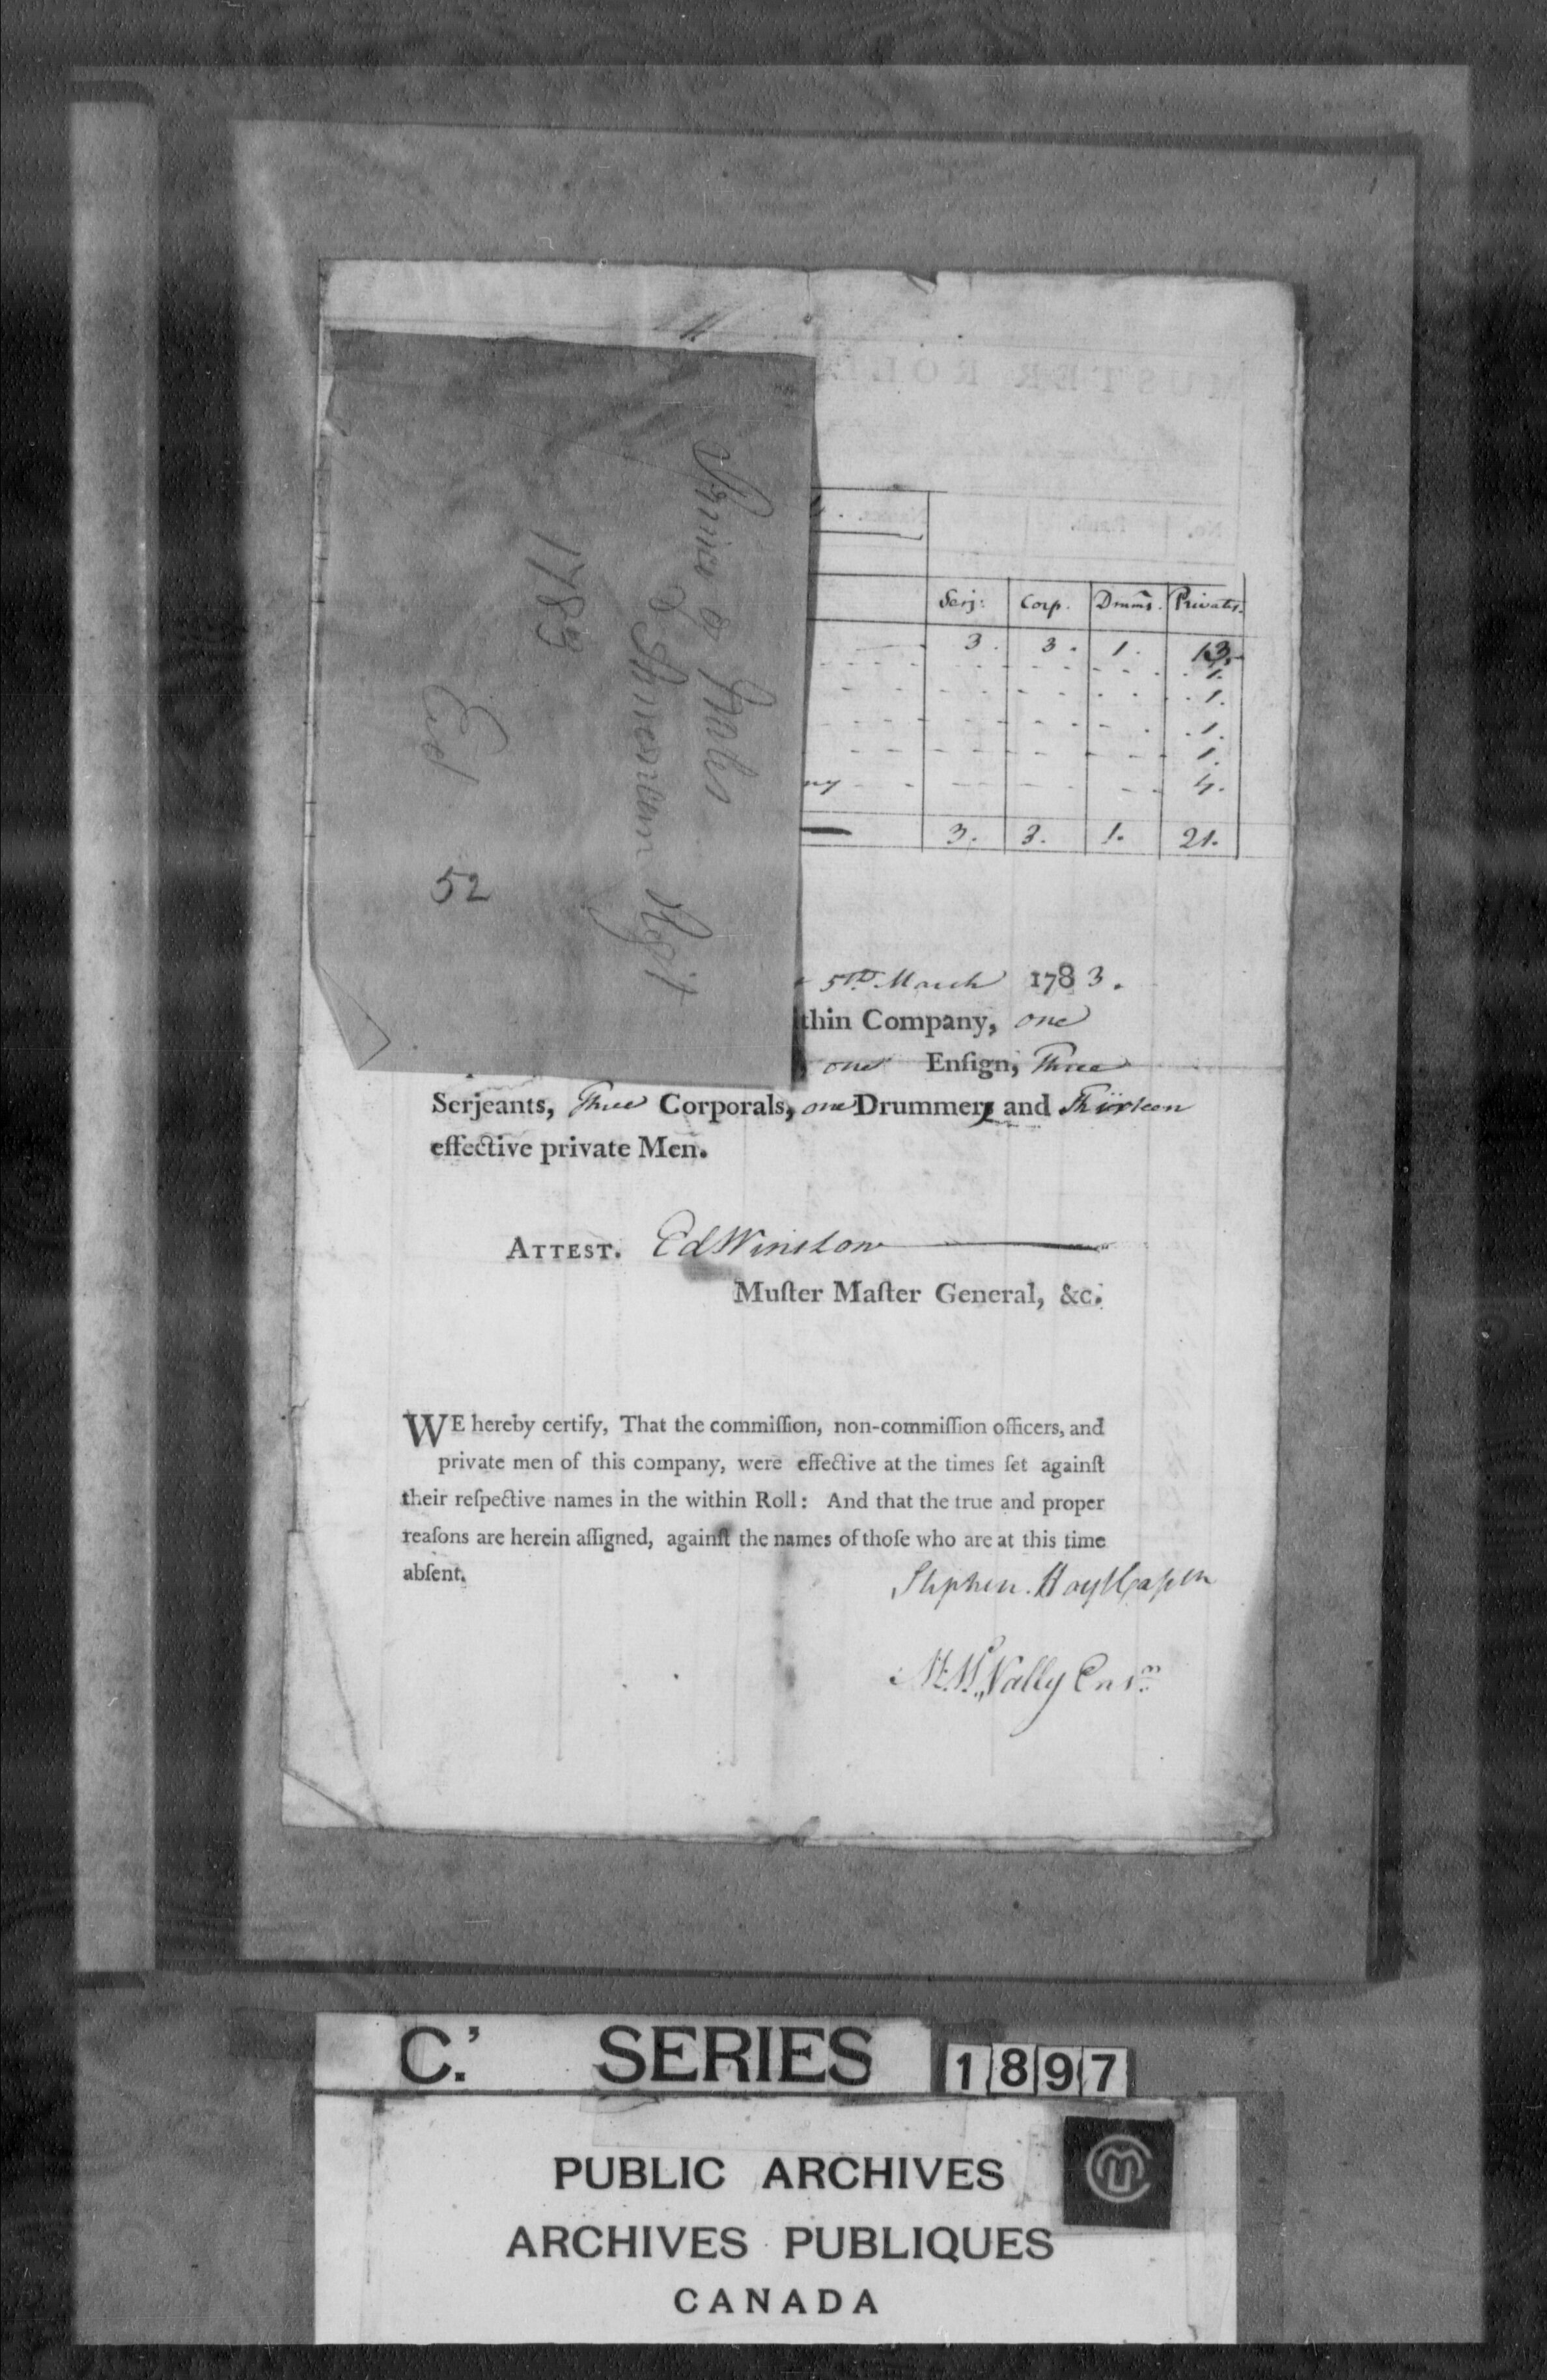 Prince of Wales
American Regt
1783
Ed
52
MUSTER ROLL
No. Rank. Names.
Serj: Corp. Drumrs. Privates.
3. 3. 1. 13.
1.
1.
1.
1.
ny 4.
3. 3. 1. 21.
5th March 1783.
thin Company, one
one Enſign, Three
Serjeants, Three Corporals, one Drummer, and Thirteen
effective private Men.
ATTEST. Ed Winslow
Muſter Maſter General, &c.
WE hereby certify, That the commiſſion, non-commiſſion officers, and
private men of this company, were effective at the times ſet againſt
their reſpective names in the within Roll: And that the true and proper
reaſons are herein aſſigned, againſt the names of thoſe who are at this time
abſent.
Stephen. Hoyt Capen
Nally Ensn
C.' SERIES 1897
PUBLIC ARCHIVES
ARCHIVES PUBLIQUES
CANADA